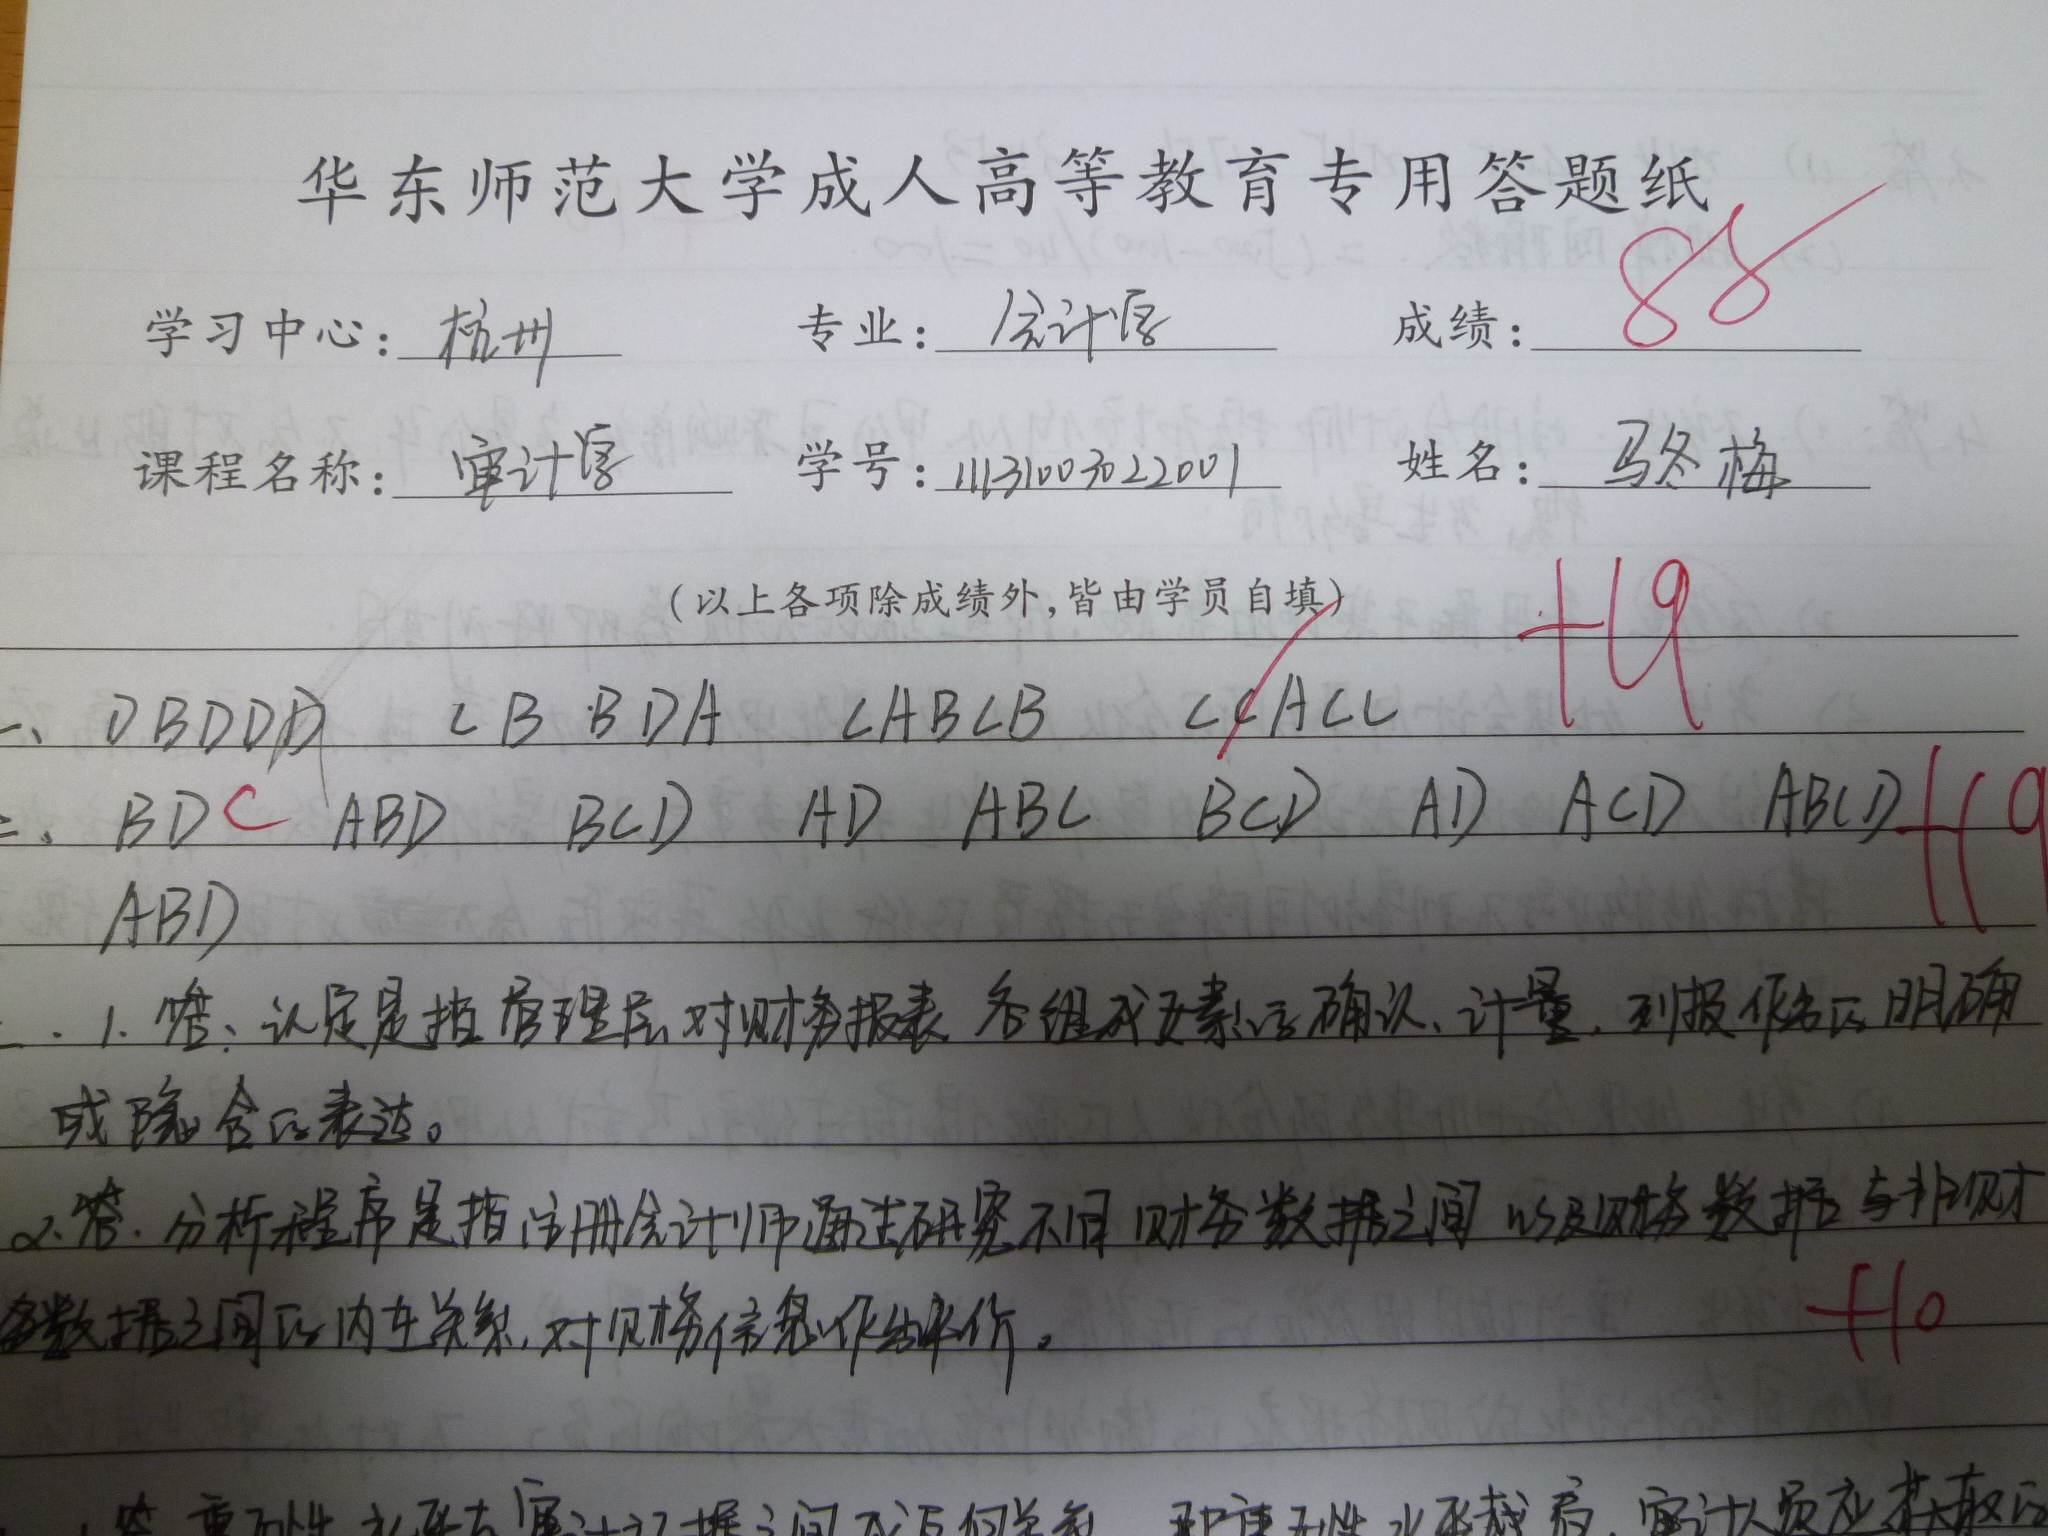 华东师范大学成人高等教育专用答题纸
学习中心: 杭州 专业: 会计学 成绩: 88
课程名称: 审计学 学号: 11131003022001 姓名: 马冬梅
(以上各项除成绩外,皆由学员自填)
+19
一、DBDDD CBBDA CABCB CCACC
二、BDC ABD BCD AD ABC BCD AD ACD ABCD +19
ABD
1. 答: 认定是指管理层对财务报表各组成要素的确认、计量、列报作出的明确
或隐含的表达。
2.答. 分析程序是指注册会计师通过研究不同财务数据之间以及财务数据与非财
务数据之间的内在关系,对财务信息作出评价。
+10
答 重要性水平与审计证据之间成反向关系 审计人员应获取的